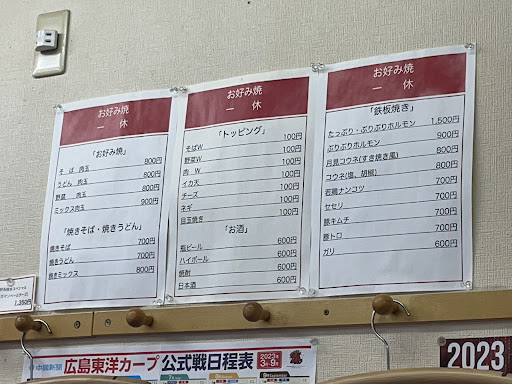 お好み焼
一 休
「お好み焼」
そば 肉玉 800円
うどん 肉玉 800円
野菜 肉玉 800円
ミックス肉玉 900円
「焼きそば・焼きうどん」
焼きそば 700円
焼きうどん 700円
焼きミックス 800円
お好み焼
一 休
「トッピング」
そばW 100円
野菜W 100円
肉 W 100円
イカ天 100円
チーズ 100円
ネギ 100円
目玉焼き 100円
「お酒」
瓶ビール 600円
ハイボール 600円
焼酎 600円
日本酒 600円
お好み焼
一 休
「鉄板焼き」
たっぷり・ぷりぷりホルモン 1,500円
ぷりぷりホルモン 900円
月見コウネ(すき焼き風) 800円
コウネ(塩、胡椒) 700円
若鶏ナンコツ 700円
セセリ 700円
豚キムチ 700円
豚トロ 700円
ガリ 600円
1,350円
中国新聞 広島東洋カープ 公式戦日程表 2023年 3▶9月
2023